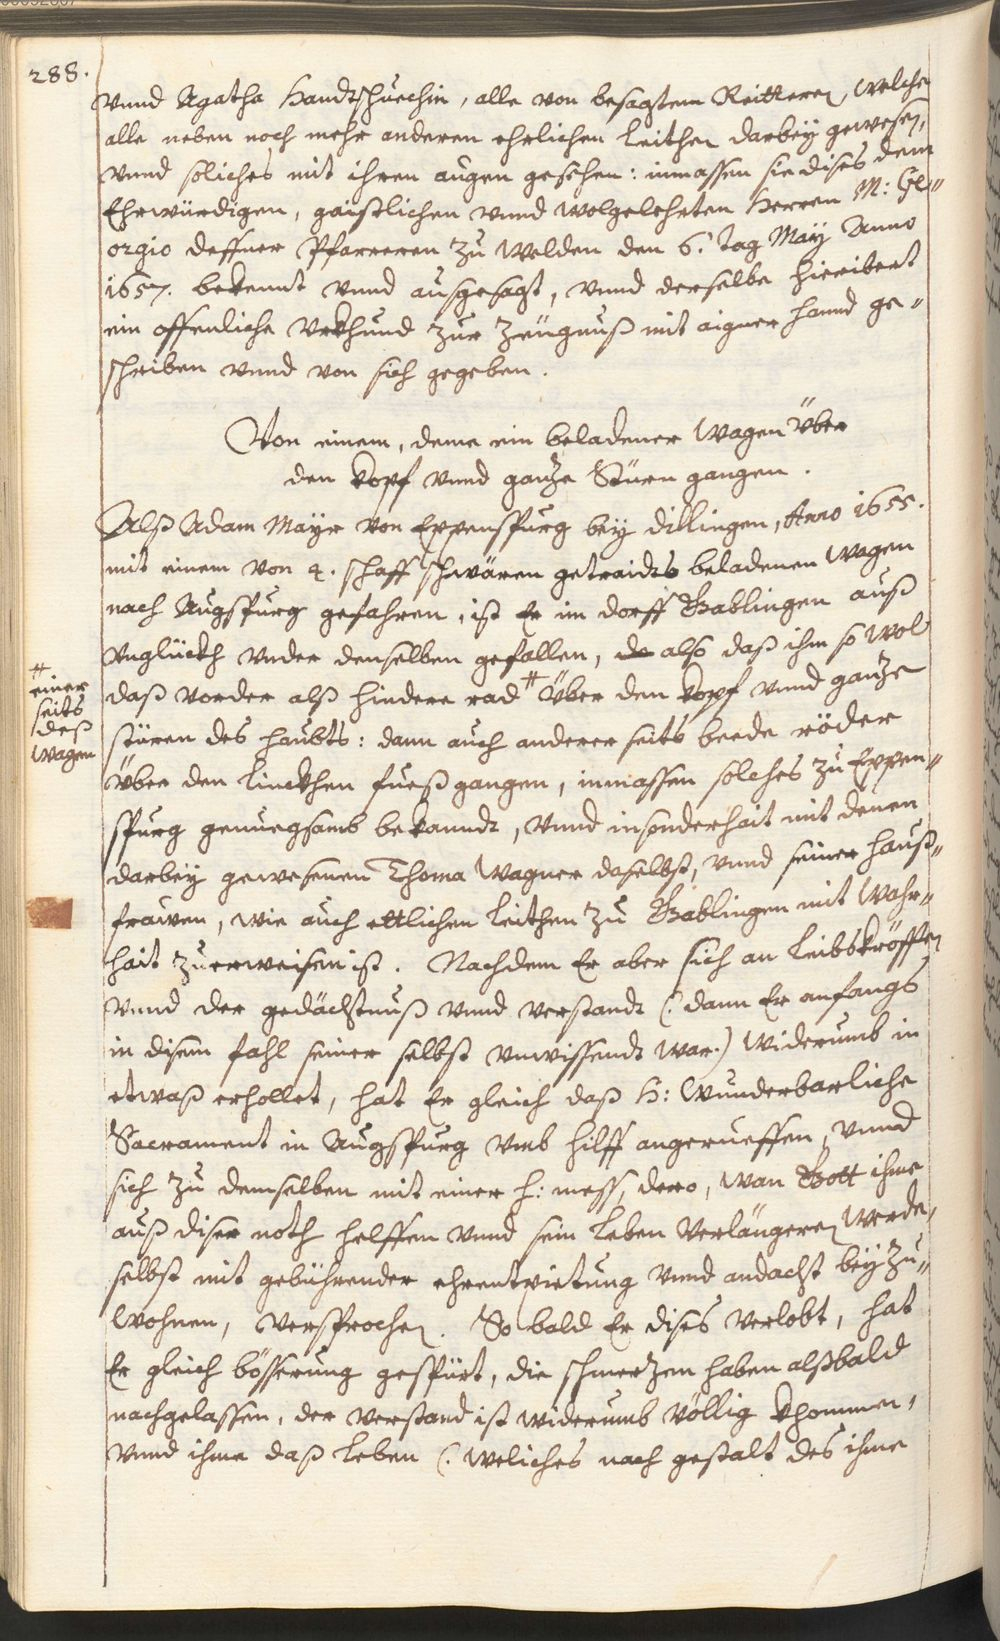 288.
vnnd Agatha Handtschuechin, alle von besagtem Reitteren, welche
alle neben noch mehr anderen ehrlichen leithen darbey gewesen,
vnnd soliches mit ihren augen gesehen: inmassen sie dises dem
Ehrwürdigen, gaistlichen vnnd wolgelehrten Herren M: Ge"
orgio deffner Pfarreren zu Welden den 6. tag May Anno
1657. bekennt vnnd außgesagt, vnnd derselbe hieribert
ein offenliche Vrkhund zur Zeügnuß mit aigner hannd ge"
schriben vnnd von sich gegeben.
Von einem, deme ein beladener Wagen über
den kopf vnnd ganze Stürn gangen.
Alß Adam Mayr von Eppenspurg bey dillingen, Anno 1655.
mit einem von 4. schaff schwären getraidts beladenen wagen
nach Augspurg gefahren, ist Er im dorff Gablingen auß
vnglückh vnder denselben gefallen, also daß ihm so wol
daß vorder alß hindere rad # über den kopf vnnd ganze
# einer
seits
deß
wagen
stüren des haubts: dann auch anderer seits beede röder
über den linckhen fueß gangen, inmassen solches zu Eppen"
spurg genuegsamb bekanndt, vnnd insonderhait mit denen
darbey gewesenen Thoma Wagner daselbst, vnnd seiner hauß"
frawen, wie auch ettlichen leithen zu Gablingen mit wahr"
hait zuerweisen ist. Nachdem Er aber sich an leibskröfften
vnnd der gedächtnuß vnnd verstandt (: dann Er anfangs
in disem fahl seiner selbst vnwissendt war.) widerumb in
etwaß erhollet, hat Er gleich daß H: Wunderbarliche
Sacrament in Augspurg vmb hilff angerueffen, vnnd
sich zu demselben mit einer h: mess, dero, wan Gott ihme
auß diser noth helffen vnnd sein leben verlängeren werde,
selbst mit gebührender ehrentpietung vnnd andacht beyzu"
wohnen, versprochen. So bald Er dises verlobt, hat
Er gleich bösserung gespürt, die schmerzen haben alßbald
nachgelassen, der verstand ist widerumb völlig khommen,
vnnd ihme daß leben (: weliches nach gestalt des ihme